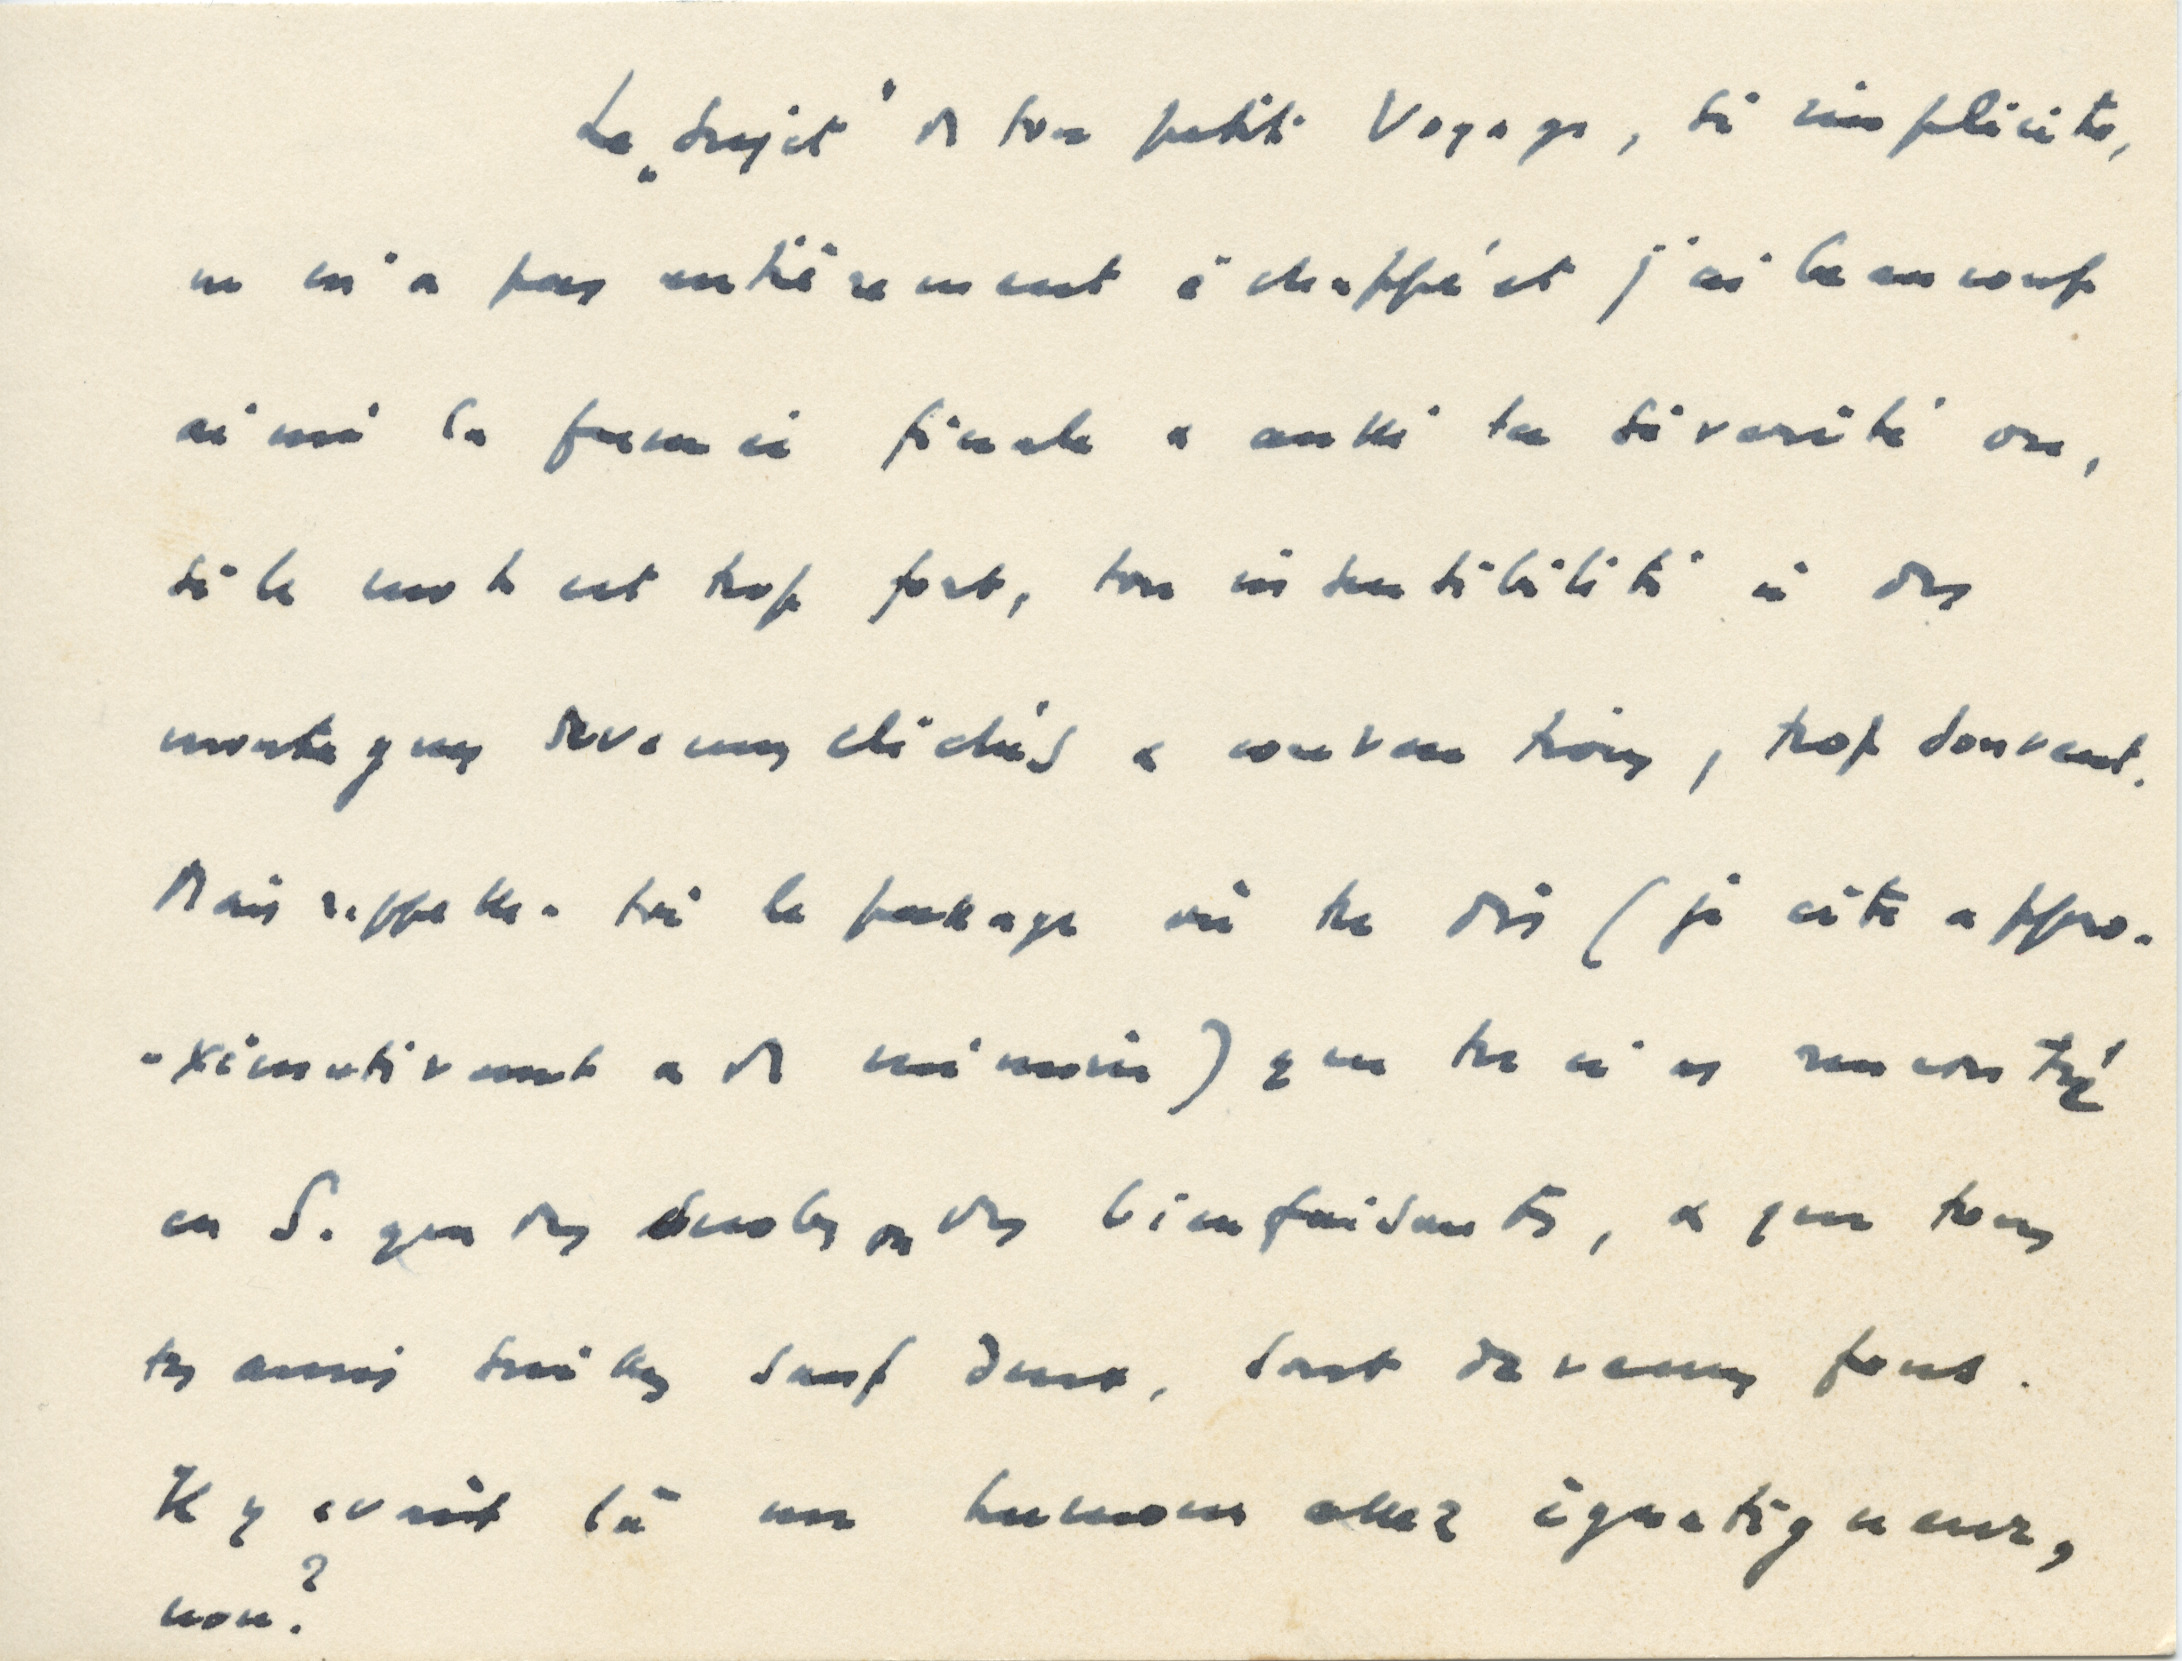 Le „sujet" de ton petit Voyage, si implicite,
ne m'a pas entièrement échappé et j'ai beaucoup
aimé la fumée finale & aussi ta sévérité ou,
si le mot est trop fort, ton insensibilité à des
montagnes devenues clichés & conventions, trop souvent.
Mais rappelle-toi le passage où tu dis (je cite appro-
-ximativement & de mémoire) que tu n'as rencontré
en S. que des snobs ou des bienfaisants, & que tous
tes amis suisses sauf deux, sont devenus fous.
Il y avait là un humour assez égratigneur,
non?